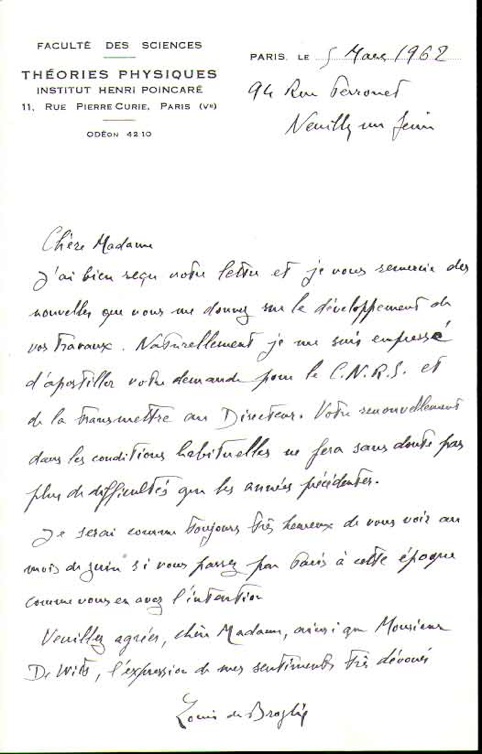 FACULTÉ DES SCIENCES
THÉORIES PHYSIQUES
INSTITUT HENRI POINCARÉ
11, RUE PIERRE CURIE, PARIS (Ve)
ODÉON 42 10
PARIS, LE 5 Mars 1962
94 Rue Perronet
Neuilly sur Seine
Chère Madame
J'ai bien reçu votre lettre et je vous remercie des
nouvelles que vous me donnez sur le développement de
vos travaux. Naturellement je me suis empressé
d'apostiller votre demande pour le C.N.R.S. et
de la transmettre au Directeur. Votre renouvellement
dans les conditions habituelles ne fera sans doute pas
plus de difficultés que les années précédentes.
Je serai comme toujours très heureux de vous voir au
mois de Juin si vous passez par Paris à cette époque
comme vous en avez l'intention
Veuillez agréer, chère Madame, ainsi que Monsieur
De Wits, l'expression de mes sentiments très dévoués
Louis de Broglie